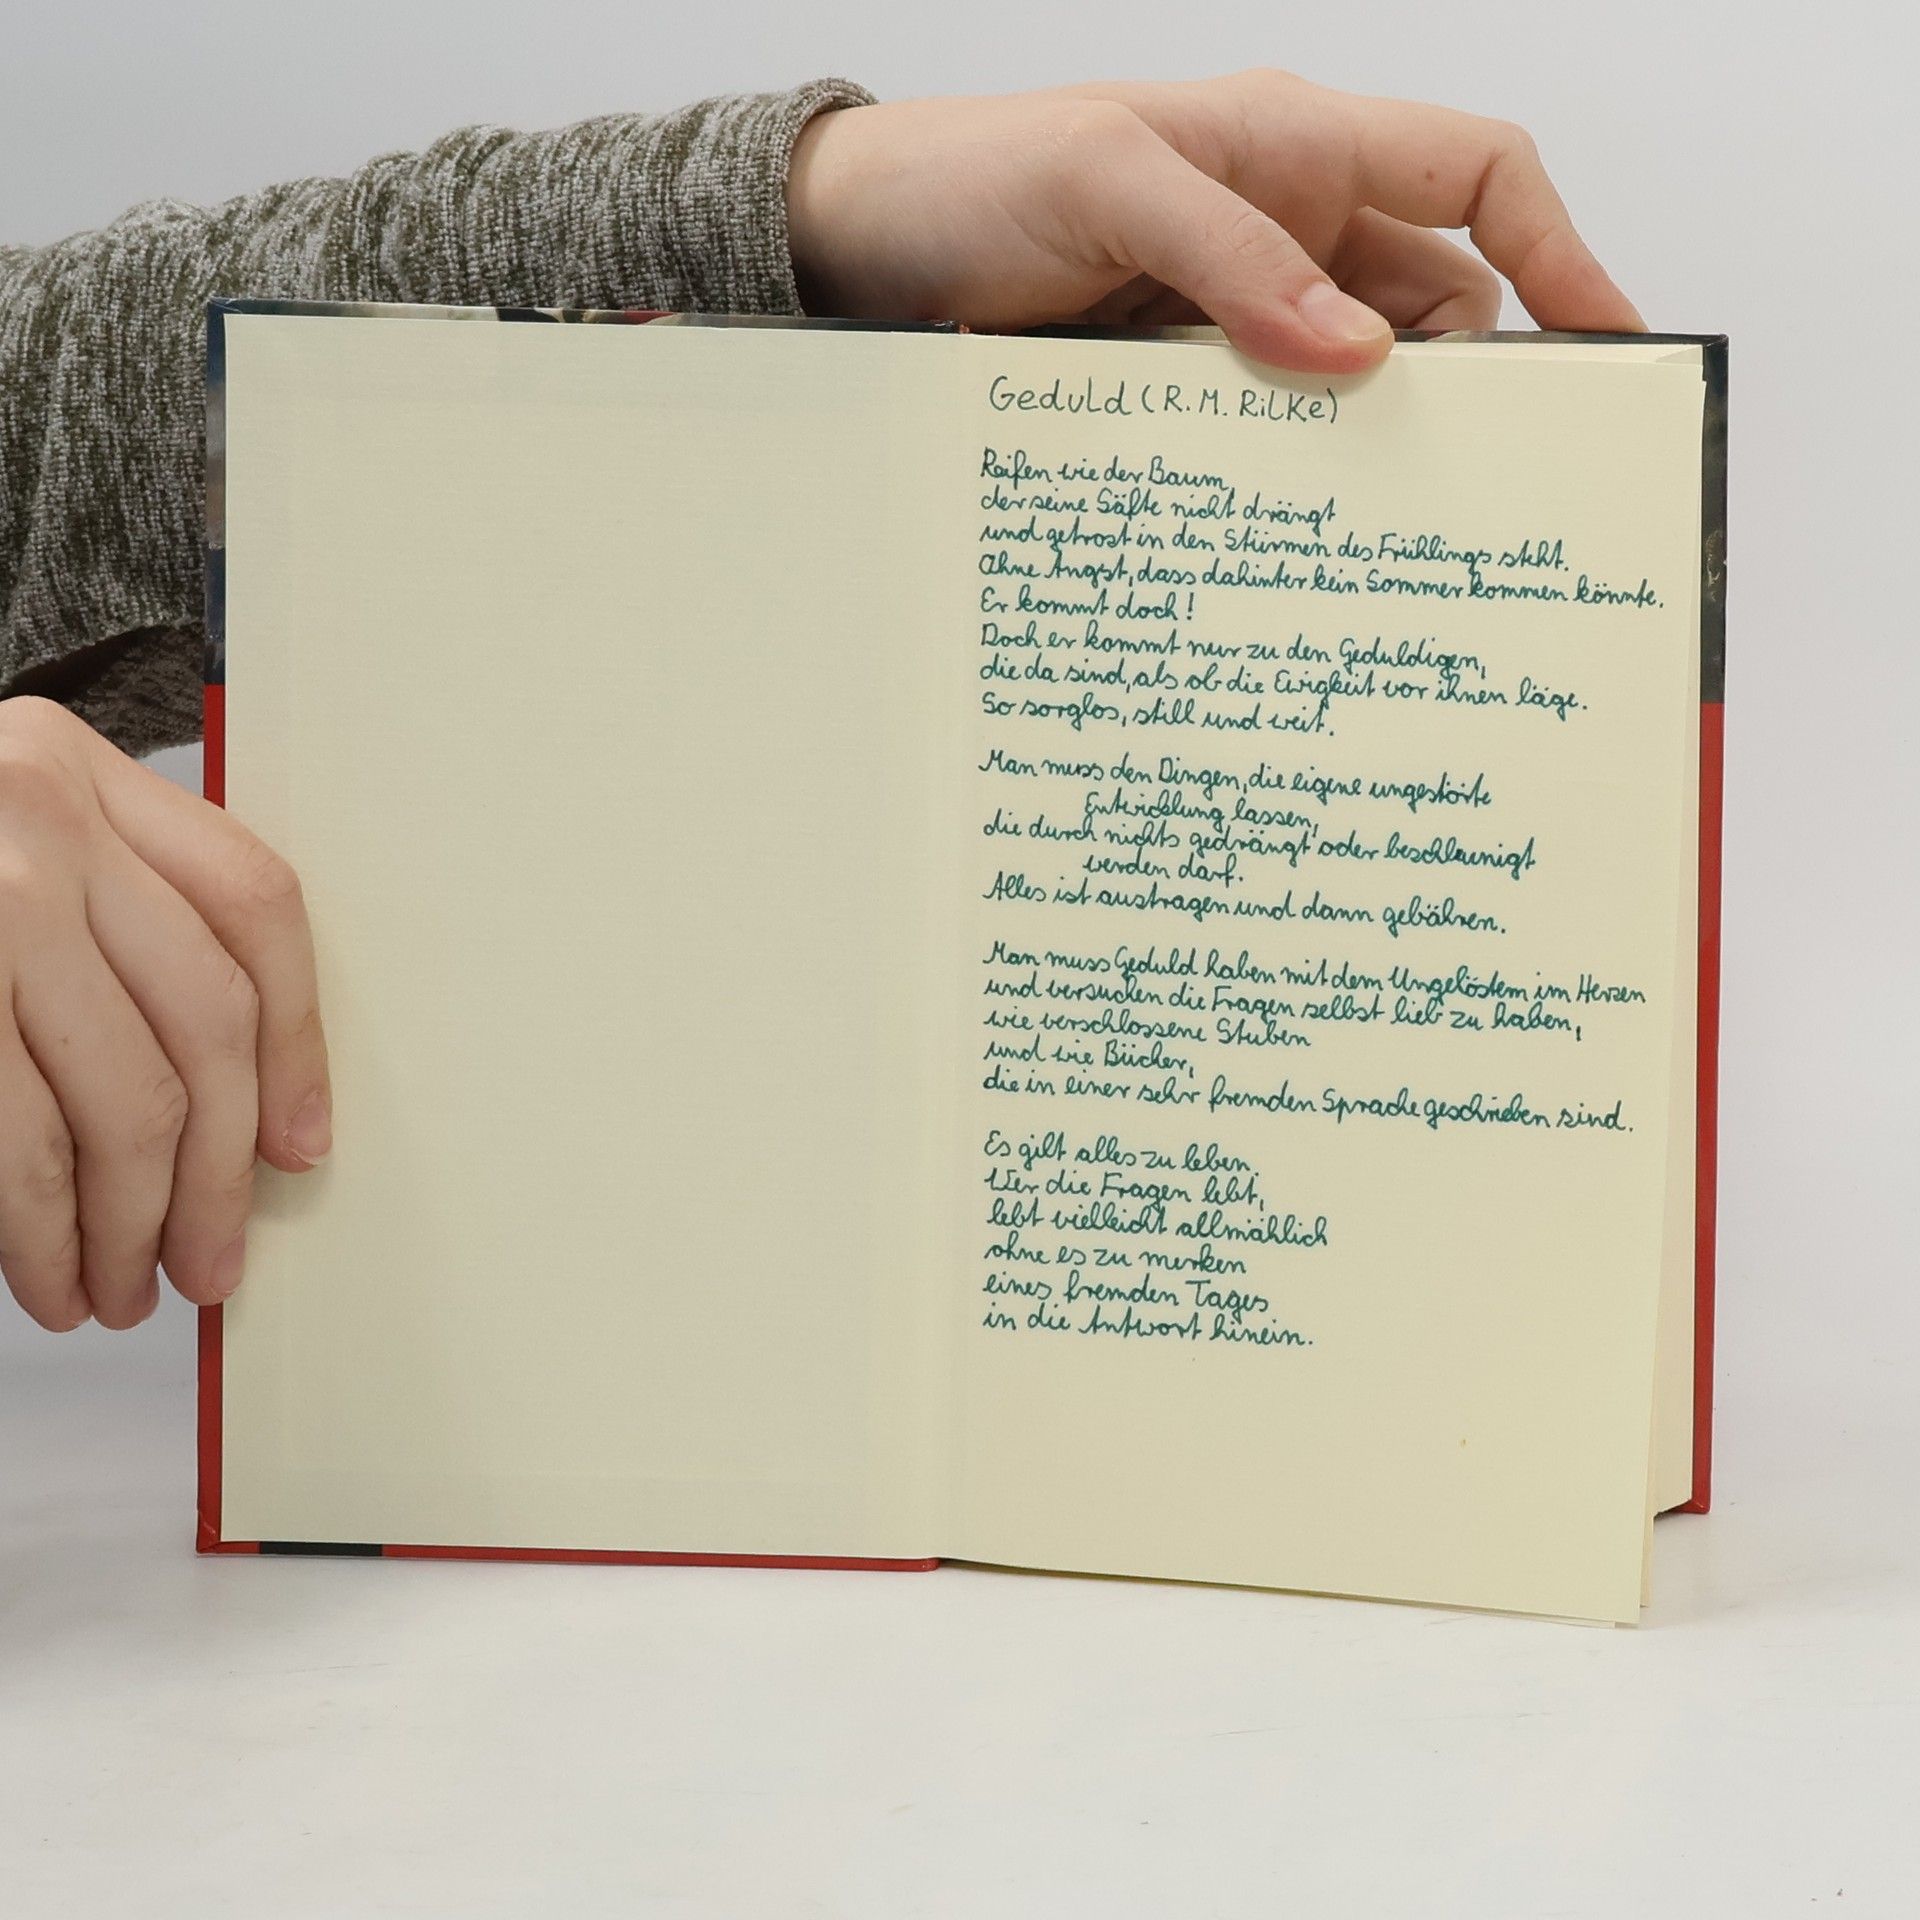 Geduld (R. M. Rilke)
Reifen wie der Baum,
der seine Säfte nicht drängt
und getrost in den Stürmen des Frühlings steht.
Ohne Angst, dass dahinter kein Sommer kommen könnte.
Er kommt doch!
Doch er kommt nur zu den Geduldigen,
die da sind, als ob die Ewigkeit vor ihnen läge.
So sorglos, still und weit.
Man muss den Dingen, die eigene ungestörte
Entwicklung lassen,
die durch nichts gedrängt oder beschleunigt
werden darf.
Alles ist austragen und dann gebähren.
Man muss Geduld haben mit dem Ungelöstem im Herzen
und versuchen die Fragen selbst lieb zu haben,
wie verschlossene Stuben
und wie Bücher,
die in einer sehr fremden Sprache geschrieben sind.
Es gilt alles zu leben.
Wer die Fragen lebt,
lebt vielleicht allmählich
ohne es zu merken
eines fremden Tages
in die Antwort hinein.